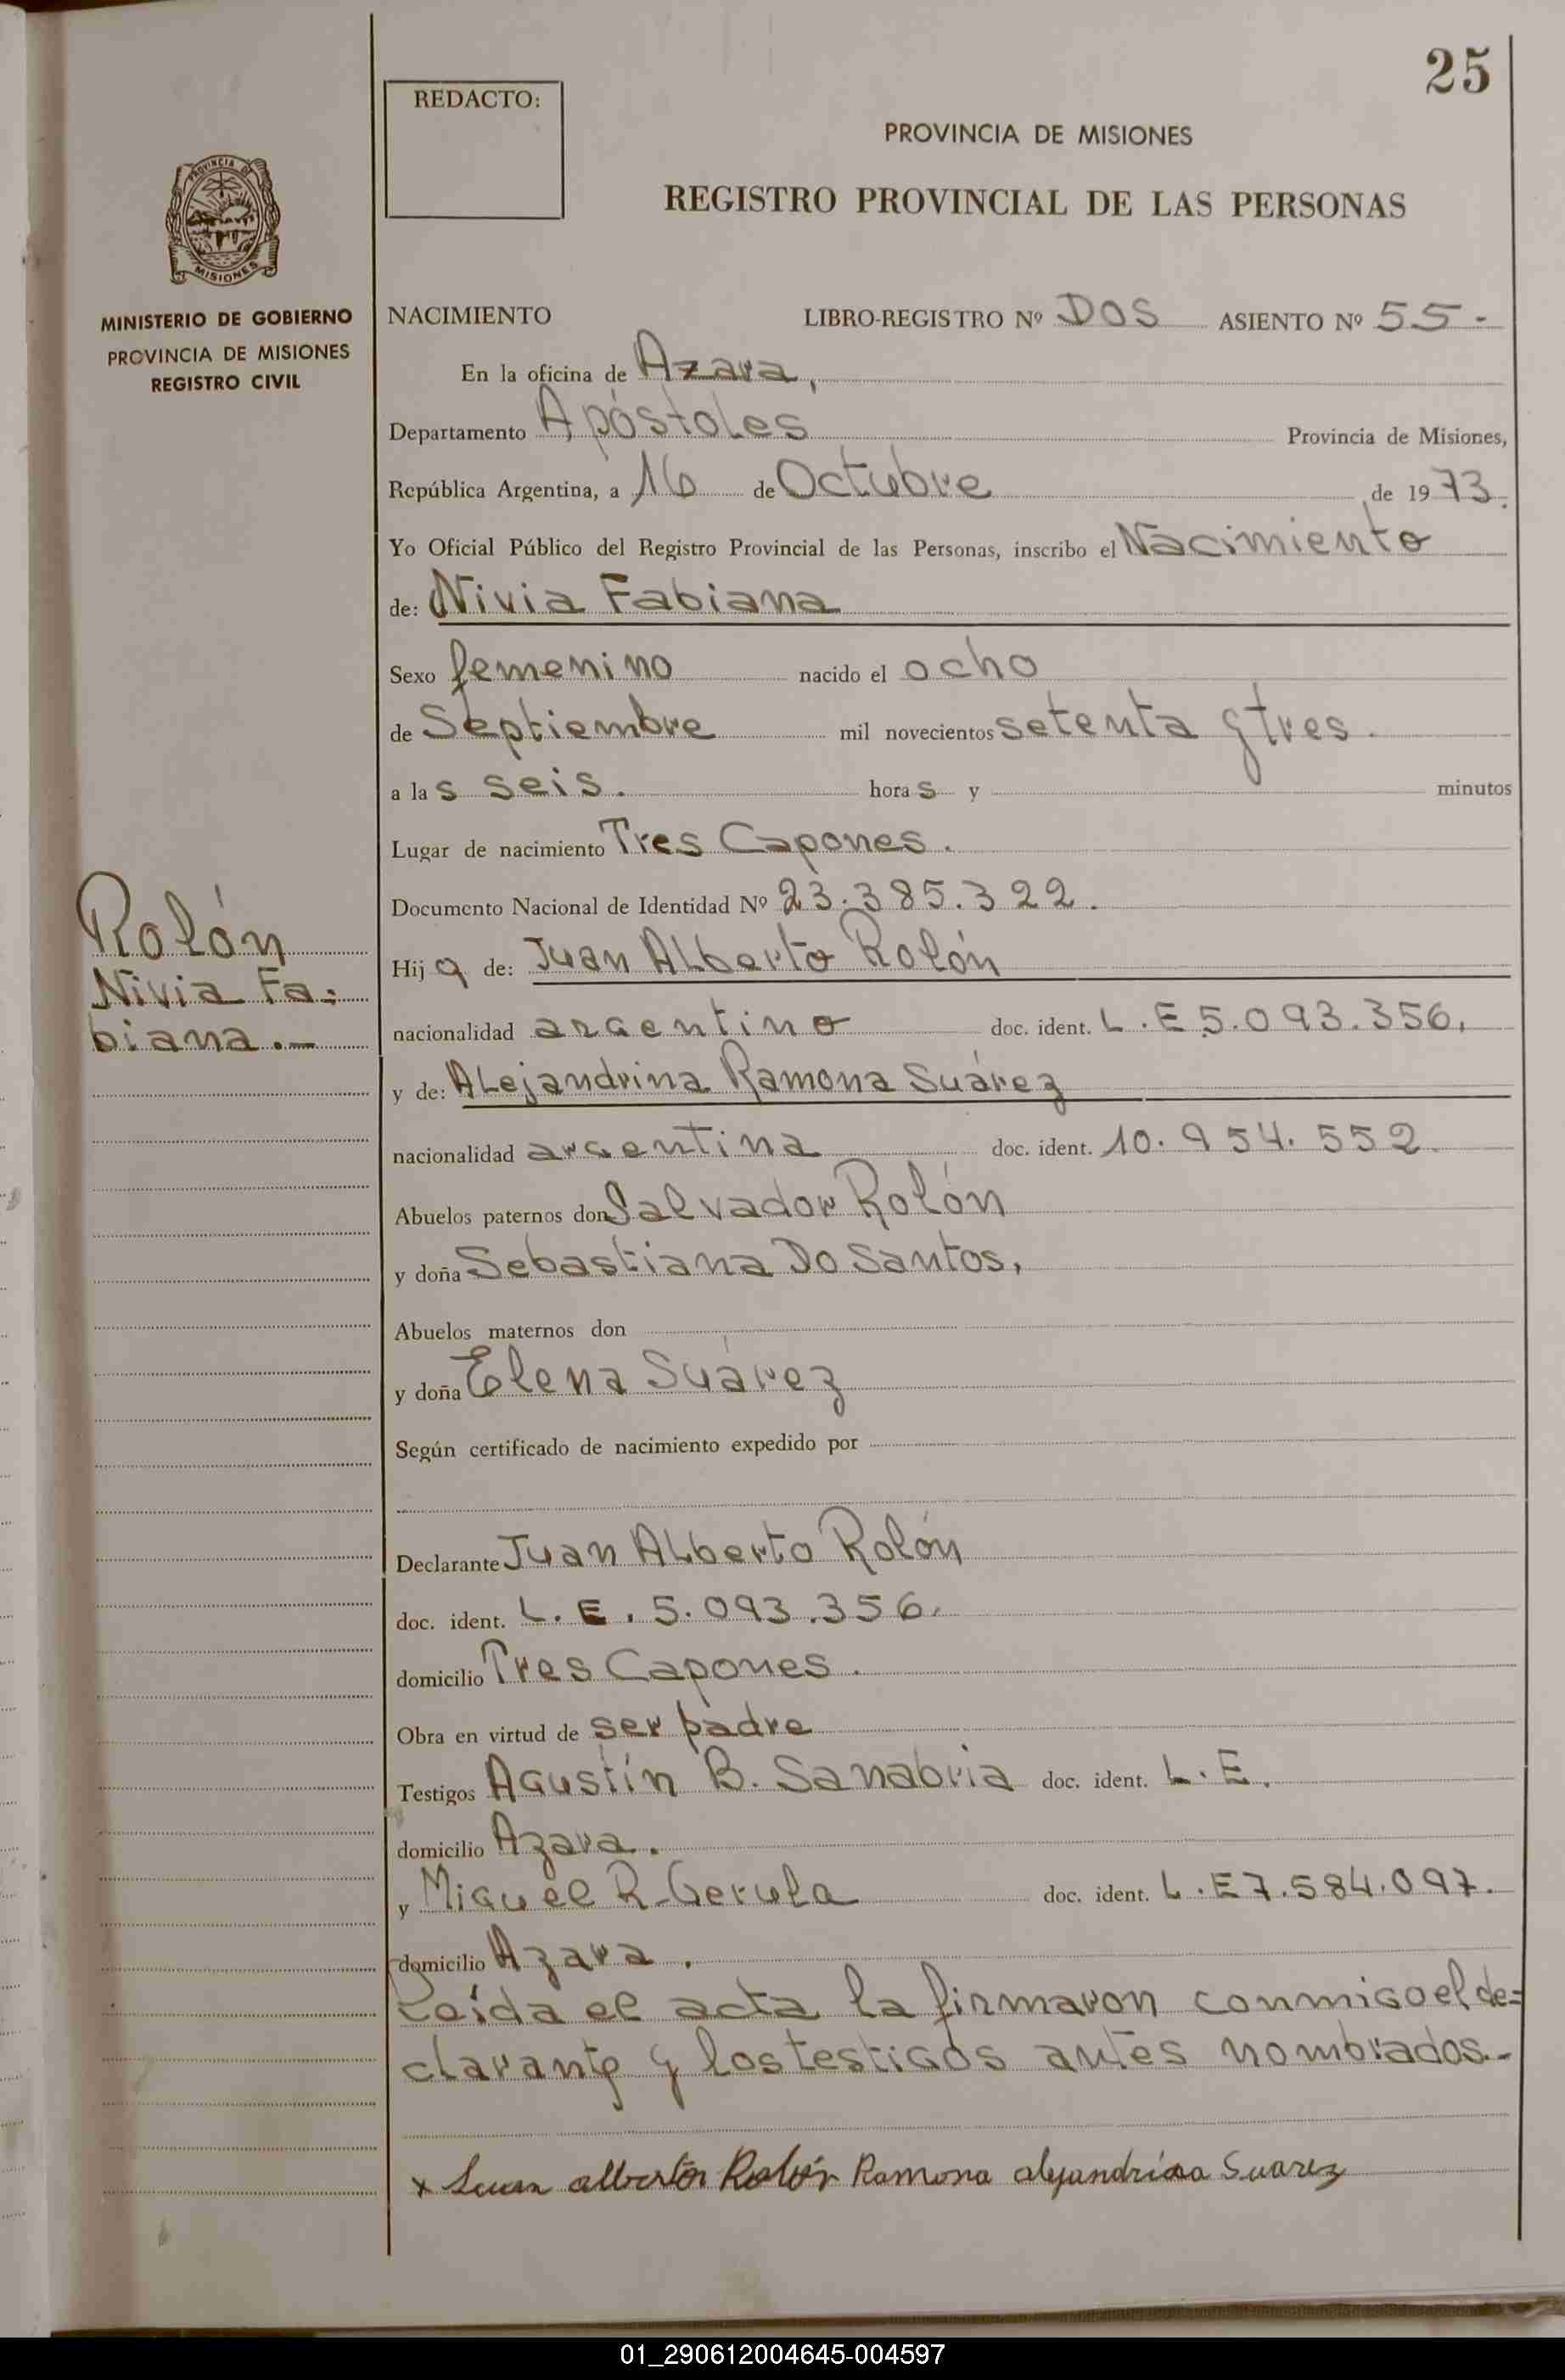 25
REDACTO:
PROVINCIA DE MISIONES
REGISTRO PROVINCIAL DE LAS PERSONAS
PROVINCIA DE
MISIONES
MINISTERIO DE GOBIERNO
PROVINCIA DE MISIONES
REGISTRO CIVIL
NACIMIENTO LIBRO-REGISTRO Nº DOS ASIENTO Nº 55-
En la oficina de Azara,
Departamento Apóstoles Provincia de Misiones,
República Argentina, a 16 de Octubre de 1973.
Yo Oficial Público del Registro Provincial de las Personas, inscribo el Nacimiento
de: Nivia Fabiana
Sexo femenino nacido el ocho
de Septiembre mil novecientos setenta y tres.
a las seis. horas y minutos
Lugar de nacimiento Tres Capones.
Documento Nacional de Identidad Nº 23.385.322.
Rolón
Nivia Fa=
biana.-
Hija de: Juan Alberto Rolón
nacionalidad argentino doc. ident. L.E 5.093.356.
y de: Alejandrina Ramona Suárez
nacionalidad argentina doc. ident. 10.954.552.
Abuelos paternos don Salvador Rolón
y doña Sebastiana Do Santos,
Abuelos maternos don
y doña Elena Suárez
Según certificado de nacimiento expedido por
Declarante Juan Alberto Rolón
doc. ident. L.E. 5.093.356.
domicilio Tres Capones.
Obra en virtud de ser padre
Testigos Agustín B. Sanabria doc. ident. L.E.
domicilio Azara.
y Miguel R. Gerula doc. ident. L.E 7.584.097.
domicilio Azara.
Leída el acta la firmaron conmigo el de=
clarante y los testigos antes nombrados.-
x Juan alberto Rolón Ramona alejandrina Suarez
01_290612004645-004597